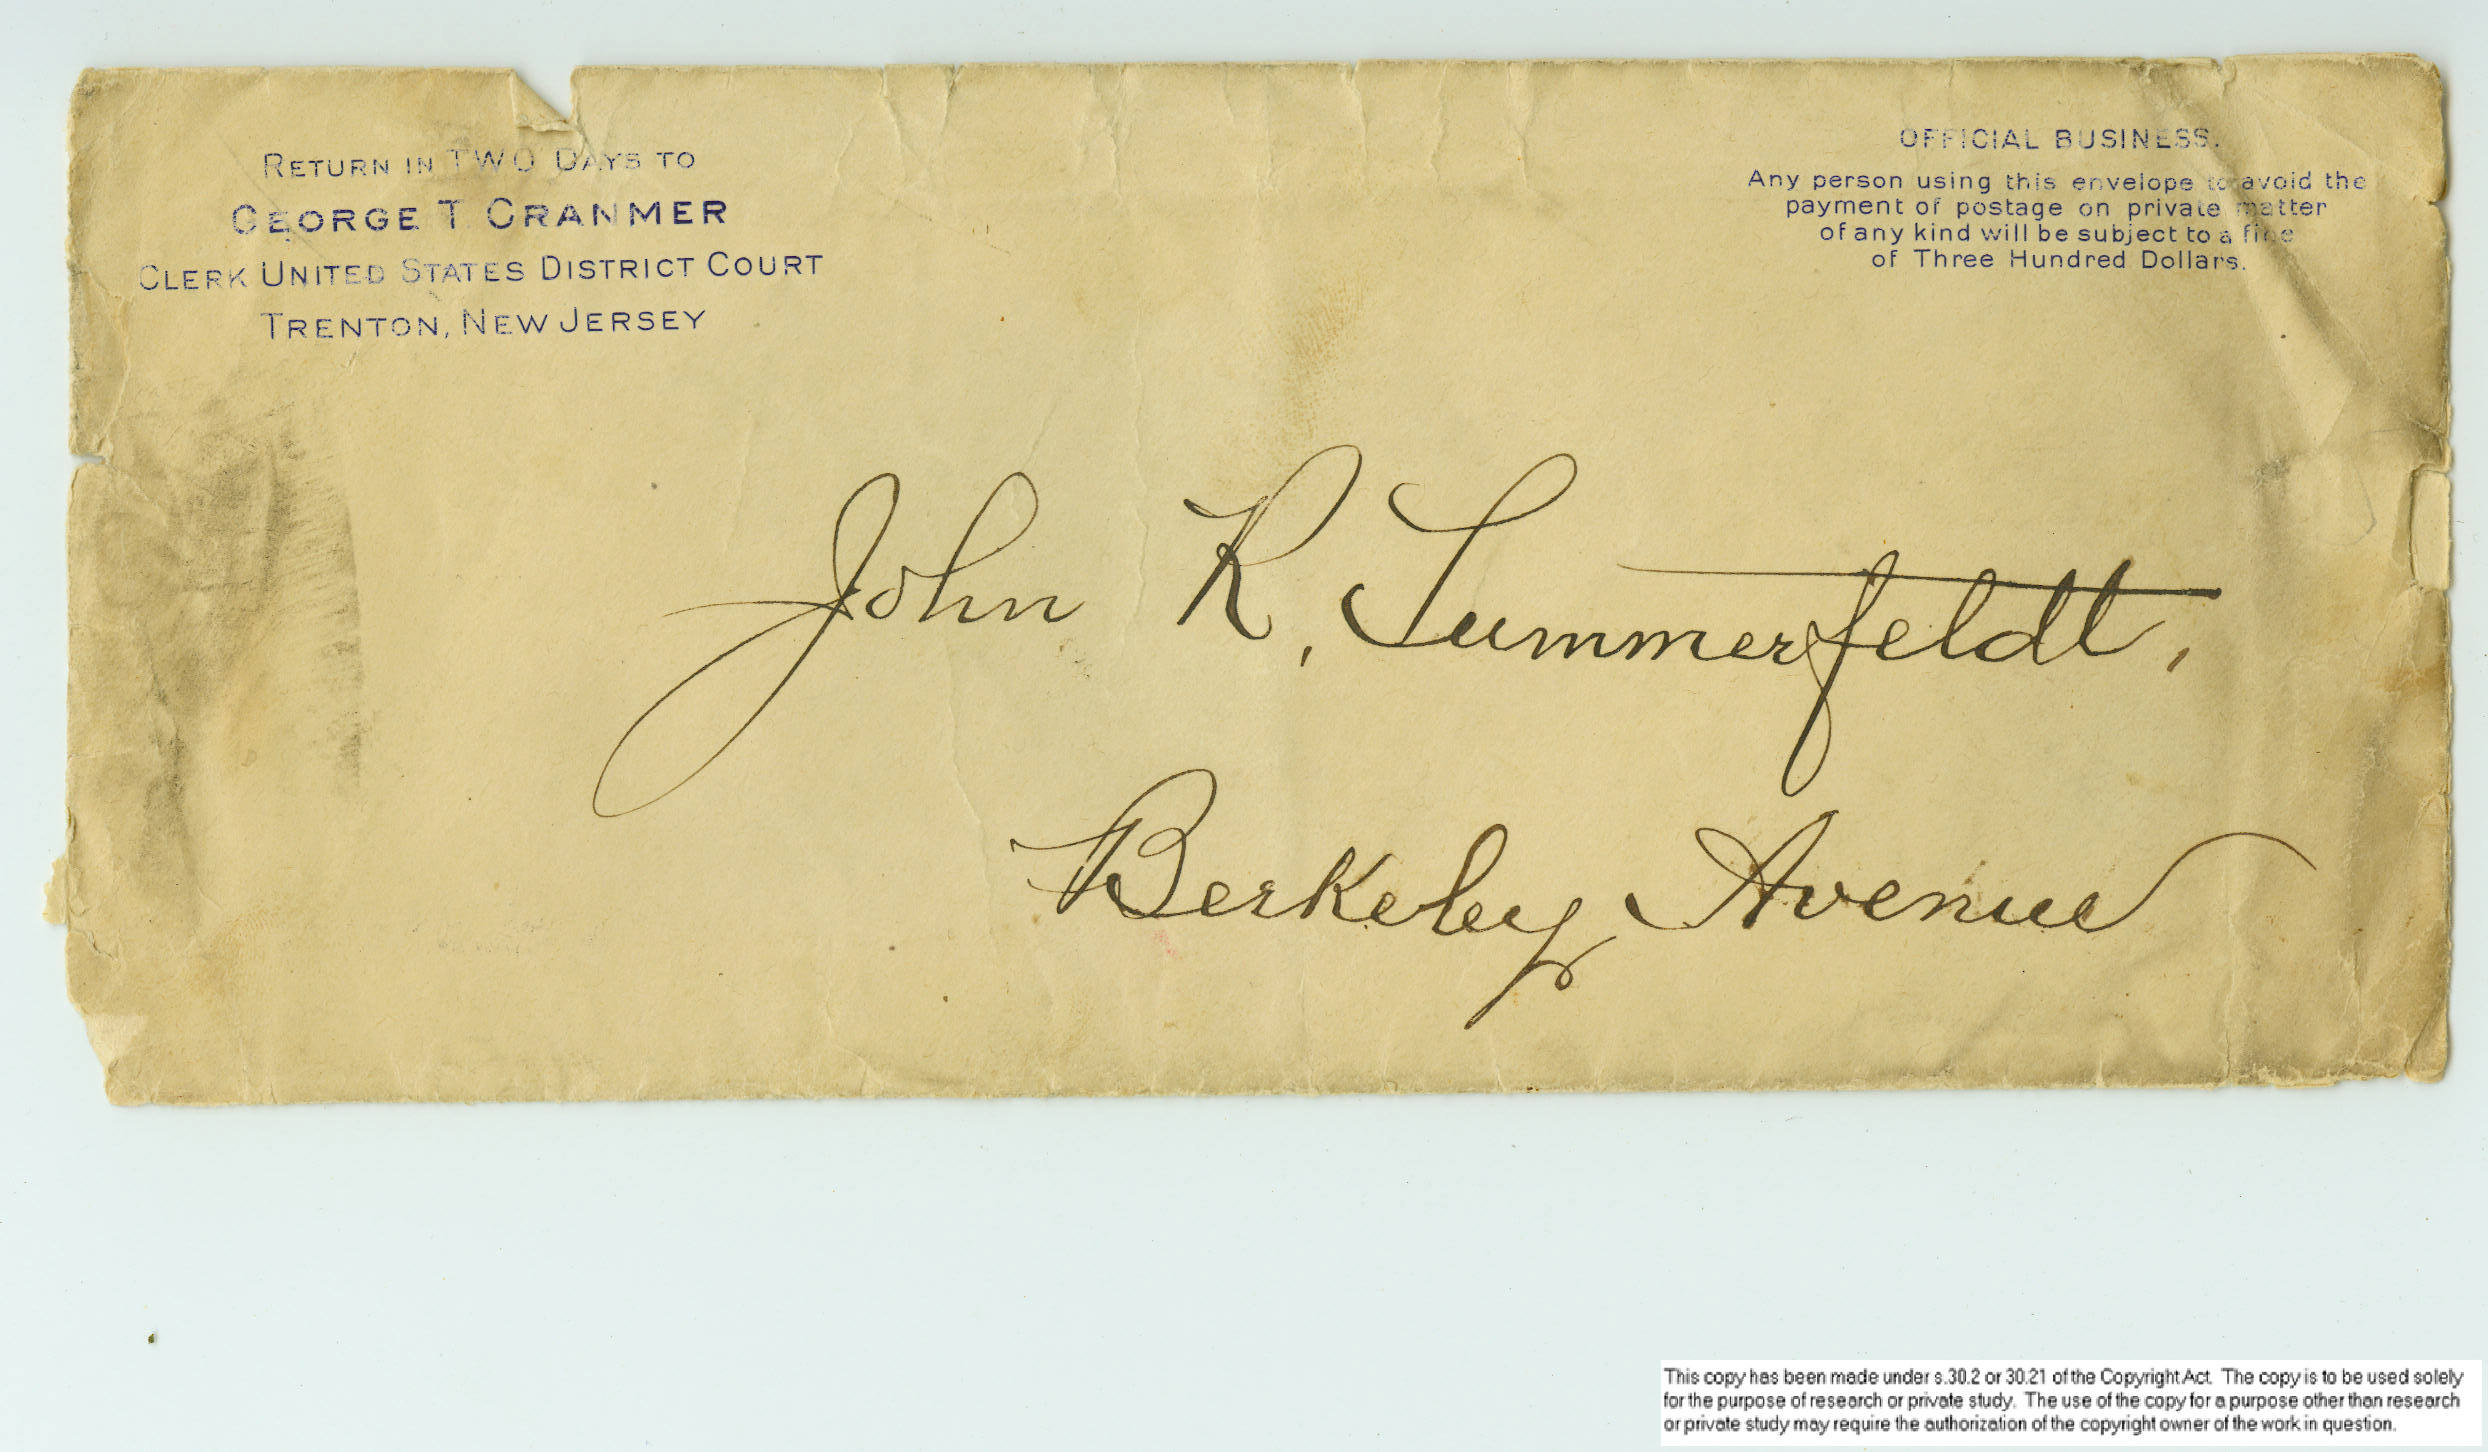 RETURN IN TWO DAYS TO
GEORGE T. CRANMER
CLERK UNITED STATES DISTRICT COURT
TRENTON, NEW JERSEY
OFFICIAL BUSINESS.
Any person using this envelope to avoid the
payment of postage on private matter
of any kind will be subject to a fine
of Three Hundred Dollars.
John R. Summerfeldt,
Berkeley Avenue
This copy has been made under s.30.2 or 30.21 of the Copyright Act. The copy is to be used solely
for the purpose of research or private study. The use of the copy for a purpose other than research
or private study may require the authorization of the copyright owner of the work in question.